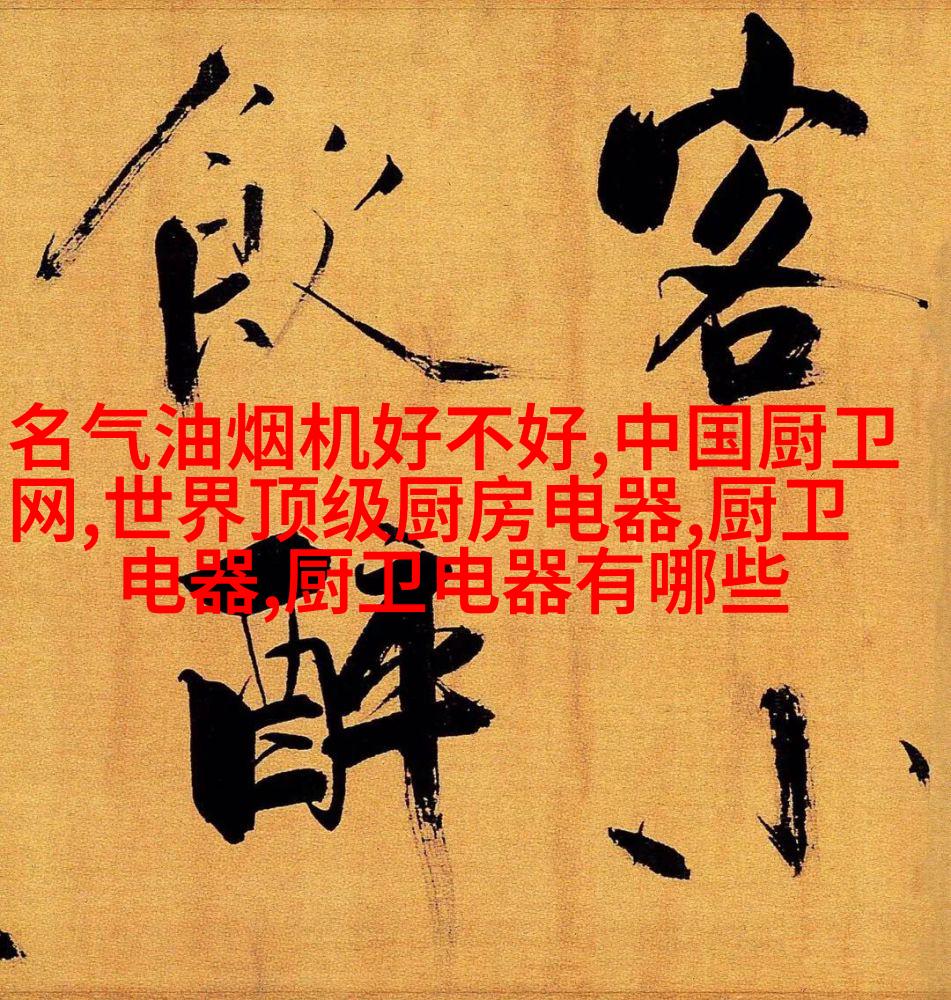 客小
飲醉
名气油烟机好不好,中国厨卫
网,世界顶级厨房电器,厨卫
电器,厨卫电器有哪些